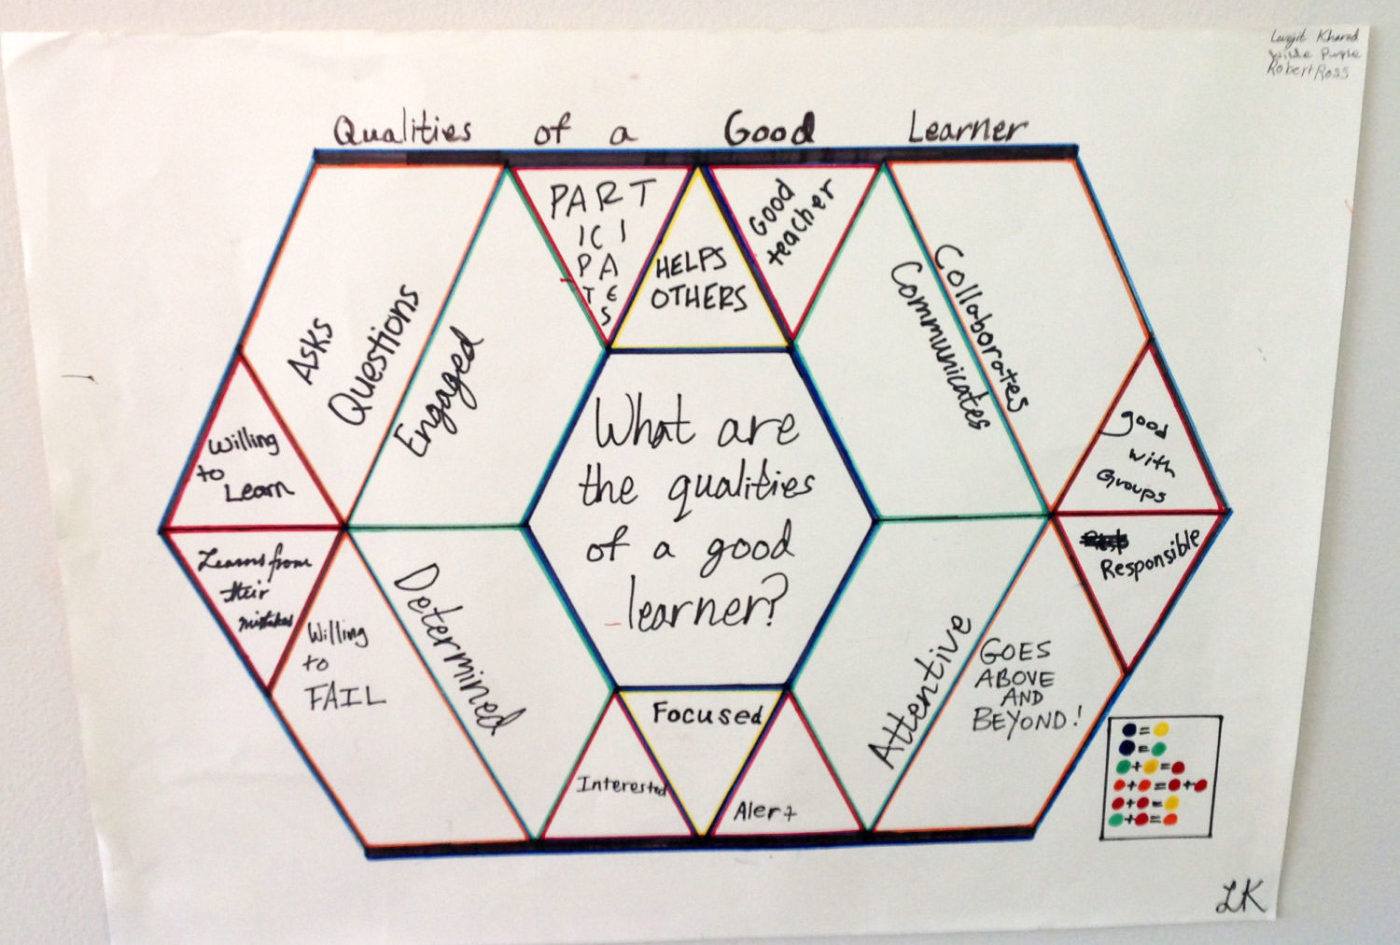 Robert Ross
Qualities of a Good Learner
PART
ICI
PA
TE
S
HELPS
OTHERS
Good
teacher
Asks
Questions
Engaged
Communicates
Collaborates
Willing
to
Learn
What are
the qualities
of a good
learner?
good
with
Groups
Learns from
their
mistakes
Willing
to
FAIL
Determined
Attentive
GOES
ABOVE
AND
BEYOND!
Responsible
Focused
Interested
Alert
=
=
+ =
+ = +
+ =
+ =
LK